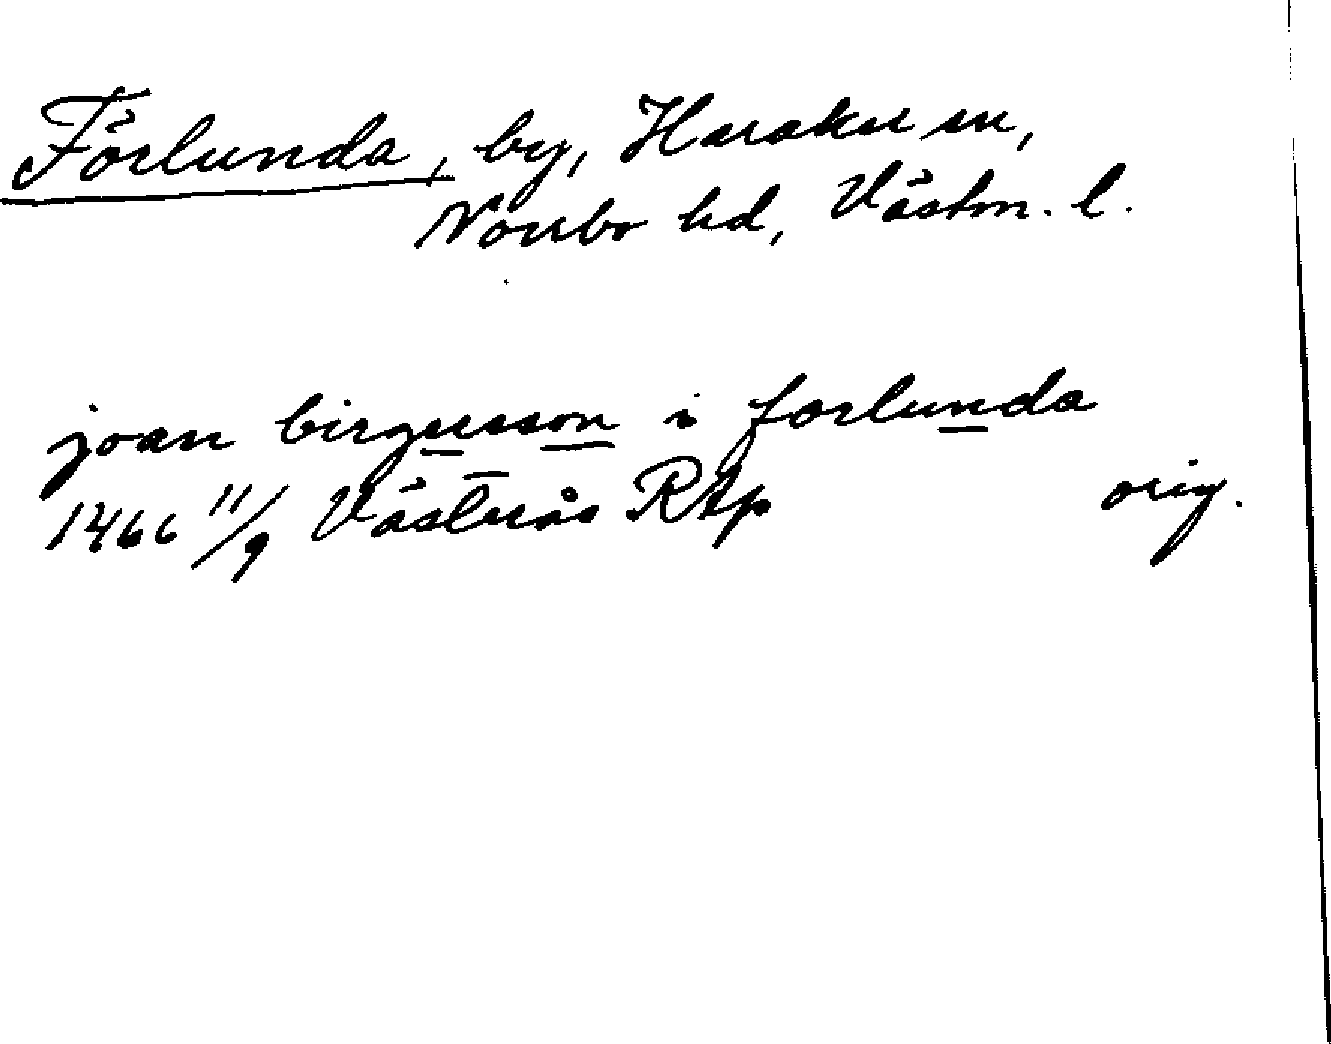 Förlunda, by, Haraker sn,
Norrbo hd, Västm. l.
joan birgersson i forlunda
1466 11/9 Västerås RAp orig.